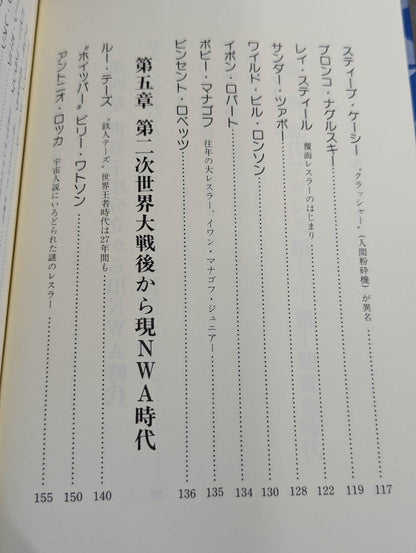 スティーブ・ケーシー “クラッシャー”（人間粉砕機）が異名 117
ブロンコ・ナグルスキー 119
レイ・スティール 覆面レスラーのはじまり 122
サンダー・ツァボー 128
ワイルド・ビル・ロンソン 130
イボン・ロバート 134
ボビー・マナゴフ 往年の大レスラー、イワン・マナゴフ・ジュニアー 135
ビンセント・ロペッツ 136
第五章 第二次世界大戦後から現NWA時代
ルー・テーズ “鉄人テーズ”世界王者時代は27年間も 140
“ホイッパー”ビリー・ワトソン 150
アントニオ・ロッカ 宇宙人説にいろどられた謎のレスラー 155